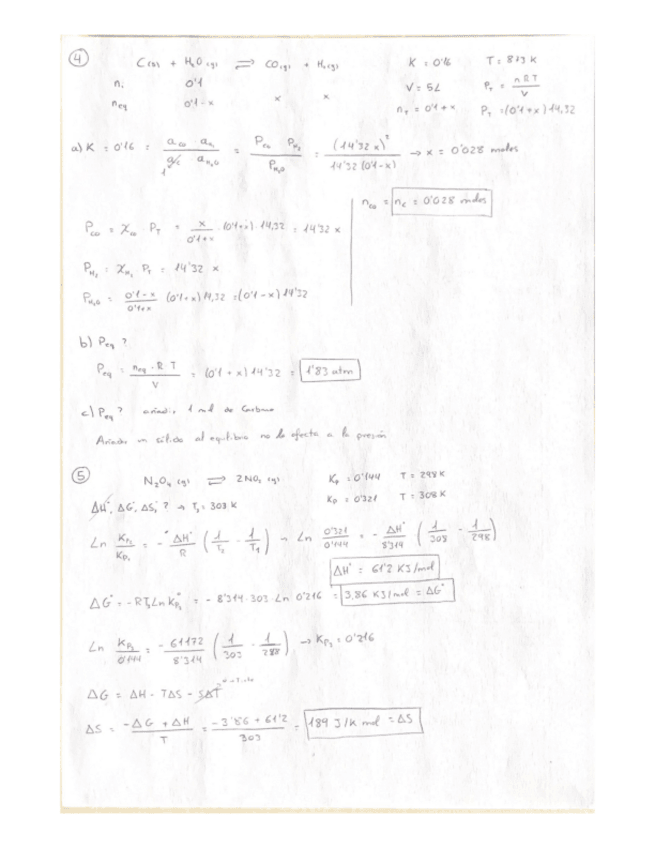 4
C(s) + H₂O(g) ⇌ CO(g) + H₂(g)   K = 0'16   T = 873 K
nᵢ   0'1   V = 5L   P_T = nRT / V
n_eq   0'1-x   x   x   n_T = 0'1+x   P_T = (0'1+x) 14,32
a) K = 0'16 = a_CO a_H₂ / a_C a_H₂O = P_CO P_H₂ / P_H₂O = (14'32 x)² / 14'32 (0'1-x) → x = 0'028 moles
1
n_CO = n_C = 0'028 moles
P_CO = χ_CO P_T = x / 0'1+x · (0'1+x) · 14,32 = 14'32 x
P_H₂ = χ_H₂ P_T = 14'32 x
P_H₂O = 0'1-x / 0'1+x (0'1+x) 14,32 = (0'1-x) 14'32
b) P_eq ?
P_eq = n_eq · R T / V = (0'1 + x) 14'32 = 1'83 atm
c) P_eq ? añadir 1 mol de Carbono
Añadir un sólido al equilibrio no le afecta a la presión
5
N₂O₄(g) ⇌ 2NO₂(g)   K_P = 0'144   T = 298 K
K_P = 0'321   T = 308 K
ΔH°, ΔG°, ΔS°, ? → T₃ = 303 K
Ln K_P₂ / K_P₁ = - ΔH° / R ( 1/T₂ - 1/T₁ ) → Ln 0'321 / 0'144 = - ΔH° / 8'314 ( 1/308 - 1/298 )
ΔH° = 61'2 KJ/mol
ΔG° = -RT₃ Ln K_P₃° = - 8'314 · 303 · Ln 0'216 = 3,86 KJ/mol = ΔG°
Ln K_P₃ / 0'144 = -61172 / 8'314 ( 1/303 - 1/298 ) → K_P₃ = 0'216
ΔG = ΔH - TΔS - SΔT
ΔS = -ΔG + ΔH / T = -3'86 + 61'2 / 303 = 189 J/K mol = ΔS